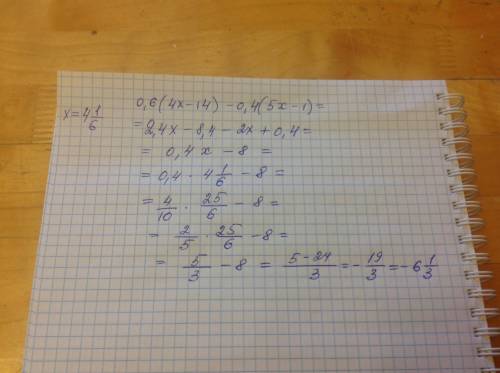 x = 4 1/6
0,6(4x-14) - 0,4(5x-1) =
= 2,4x - 8,4 - 2x + 0,4 =
= 0,4x - 8 =
= 0,4 · 4 1/6 - 8 =
= 4/10 · 25/6 - 8 =
= 2/5 · 25/6 - 8 =
= 5/3 - 8 = (5-24)/3 = -19/3 = -6 1/3